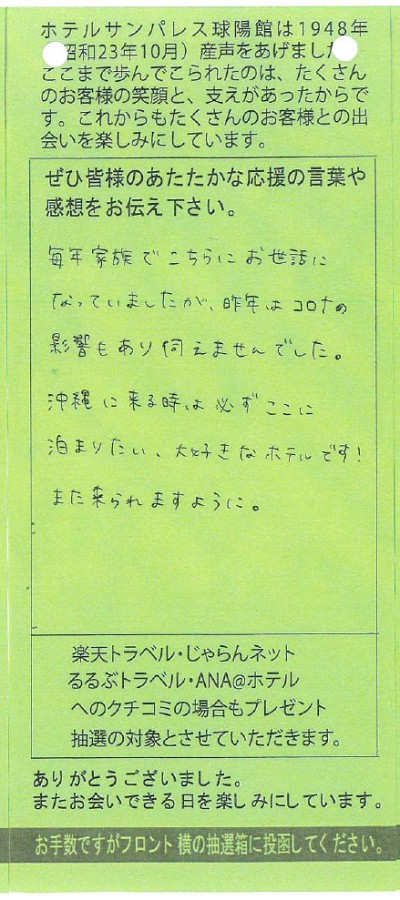 ホテルサンパレス球陽館は1948年
昭和23年10月）産声をあげました
ここまで歩んでこられたのは、たくさん
のお客様の笑顔と、支えがあったからで
す。これからもたくさんのお客様との出
会いを楽しみにしています。
ぜひ皆様のあたたかな応援の言葉や
感想をお伝え下さい。
毎年家族でこちらにお世話に
なっていましたが、昨年はコロナの
影響もあり伺えませんでした。
沖縄に来る時は必ずここに
泊まりたい、大好きなホテルです!
また来られますように。
楽天トラベル・じゃらんネット
るるぶトラベル・ANA@ホテル
へのクチコミの場合もプレゼント
抽選の対象とさせていただきます。
ありがとうございました。
またお会いできる日を楽しみにしています。
お手数ですがフロント横の抽選箱に投函してください。